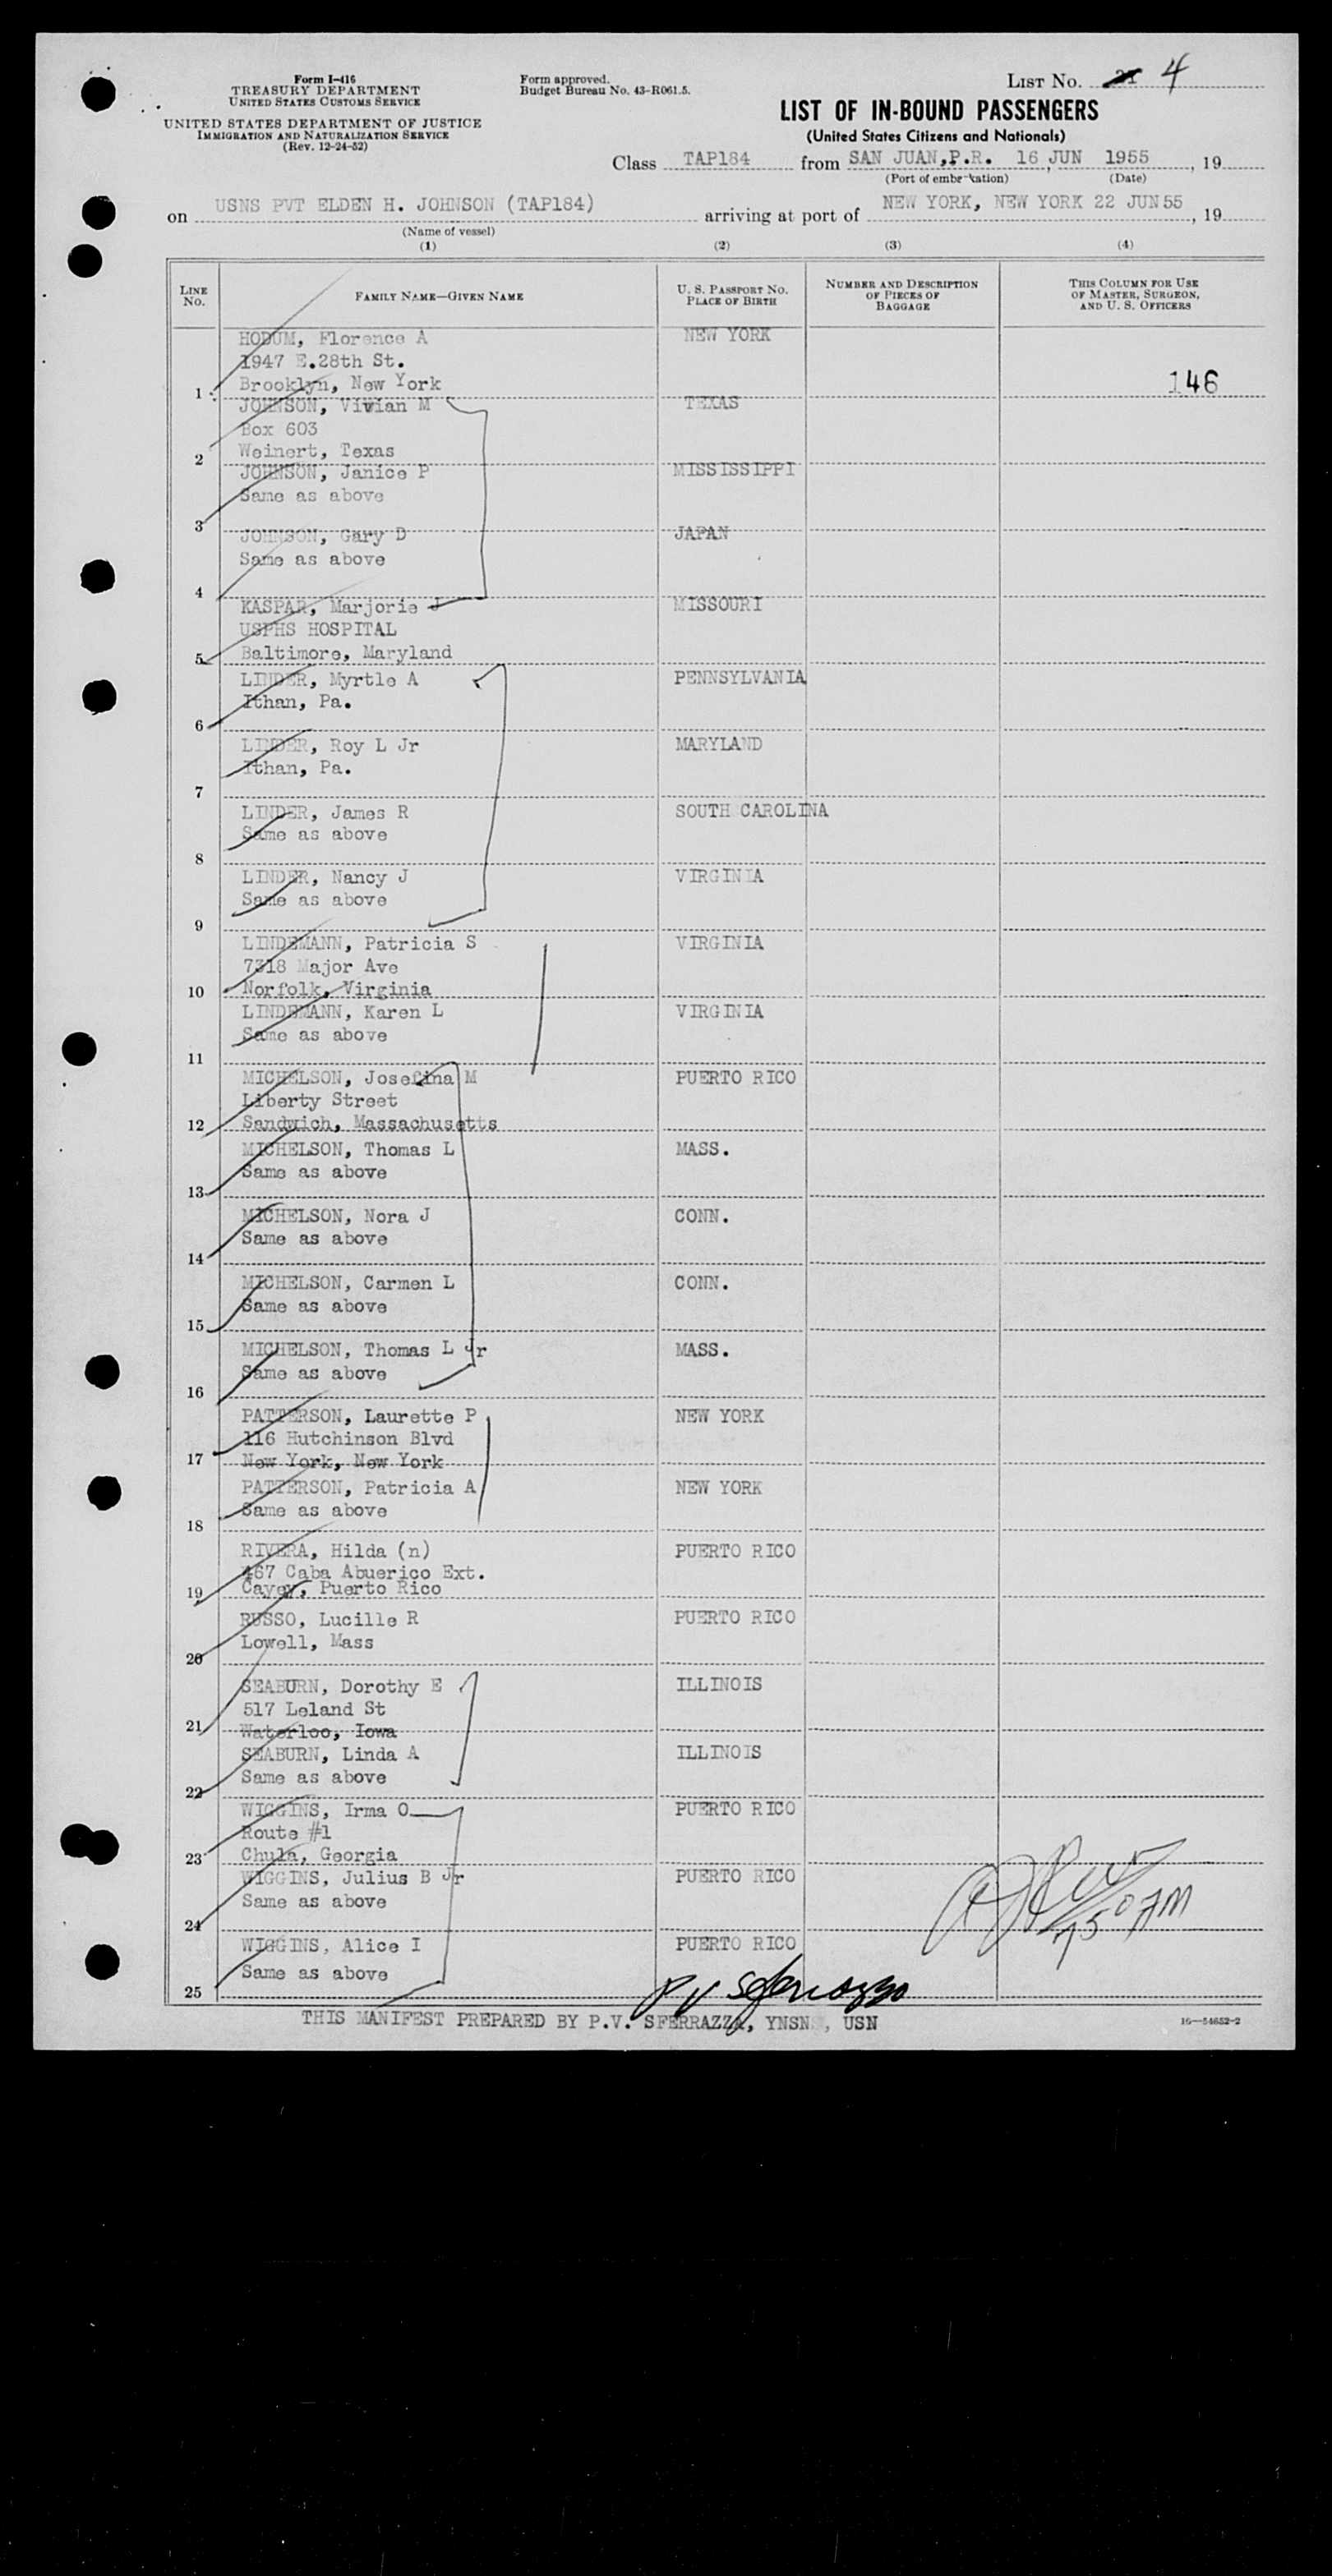 Form I-416
TREASURY DEPARTMENT
UNITED STATES CUSTOMS SERVICE
UNITED STATES DEPARTMENT OF JUSTICE
IMMIGRATION AND NATURALIZATION SERVICE
(Rev. 12-24-52)
Form approved.
Budget Bureau No. 43-R061.5.
LIST NO. 4
LIST OF IN-BOUND PASSENGERS
(United States Citizens and Nationals)
Class TAP184 from SAN JUAN, P.R. 16 JUN 1955, 19
(Port of embarkation) (Date)
on USNS PVT ELDEN H. JOHNSON (TAP184) arriving at port of NEW YORK, NEW YORK 22 JUN55, 19
(Name of vessel)
(1) (2) (3) (4)
LINE NO. FAMILY NAME—GIVEN NAME U. S. PASSPORT NO. PLACE OF BIRTH NUMBER AND DESCRIPTION OF PIECES OF BAGGAGE THIS COLUMN FOR USE OF MASTER, SURGEON, AND U. S. OFFICERS
HODUM, Florence A NEW YORK
1947 E.28th St.
1 Brooklyn, New York 146
JOHNSON, Vivian M TEXAS
Box 603
2 Weinert, Texas
JOHNSON, Janice P MISSISSIPPI
Same as above
3
JOHNSON, Gary D JAPAN
Same as above
4
KASPAR, Marjorie J MISSOURI
USPHS HOSPITAL
5 Baltimore, Maryland
LINDER, Myrtle A PENNSYLVANIA
Ithan, Pa.
6
LINDER, Roy L Jr MARYLAND
Ithan, Pa.
7
LINDER, James R SOUTH CAROLINA
Same as above
8
LINDER, Nancy J VIRGINIA
Same as above
9
LINDEMANN, Patricia S VIRGINIA
7318 Major Ave
10 Norfolk, Virginia
LINDEMANN, Karen L VIRGINIA
Same as above
11
MICHELSON, Josefina M PUERTO RICO
Liberty Street
12 Sandwich, Massachusetts
MICHELSON, Thomas L MASS.
Same as above
13
MICHELSON, Nora J CONN.
Same as above
14
MICHELSON, Carmen L CONN.
Same as above
15
MICHELSON, Thomas L Jr MASS.
Same as above
16
PATTERSON, Laurette P NEW YORK
116 Hutchinson Blvd
17 New York, New York
PATTERSON, Patricia A NEW YORK
Same as above
18
RIVERA, Hilda (n) PUERTO RICO
467 Caba Abuerico Ext.
19 Cayey, Puerto Rico
RUSSO, Lucille R PUERTO RICO
Lowell, Mass
20
SEABURN, Dorothy E ILLINOIS
517 Leland St
21 Waterloo, Iowa
SEABURN, Linda A ILLINOIS
Same as above
22
WIGGINS, Irma O PUERTO RICO
Route #1
23 Chula, Georgia
WIGGINS, Julius B Jr PUERTO RICO
Same as above
24
WIGGINS, Alice I PUERTO RICO
Same as above
25
THIS MANIFEST PREPARED BY P.V. SFERRAZZA, YNSN, USN
16—54652-2